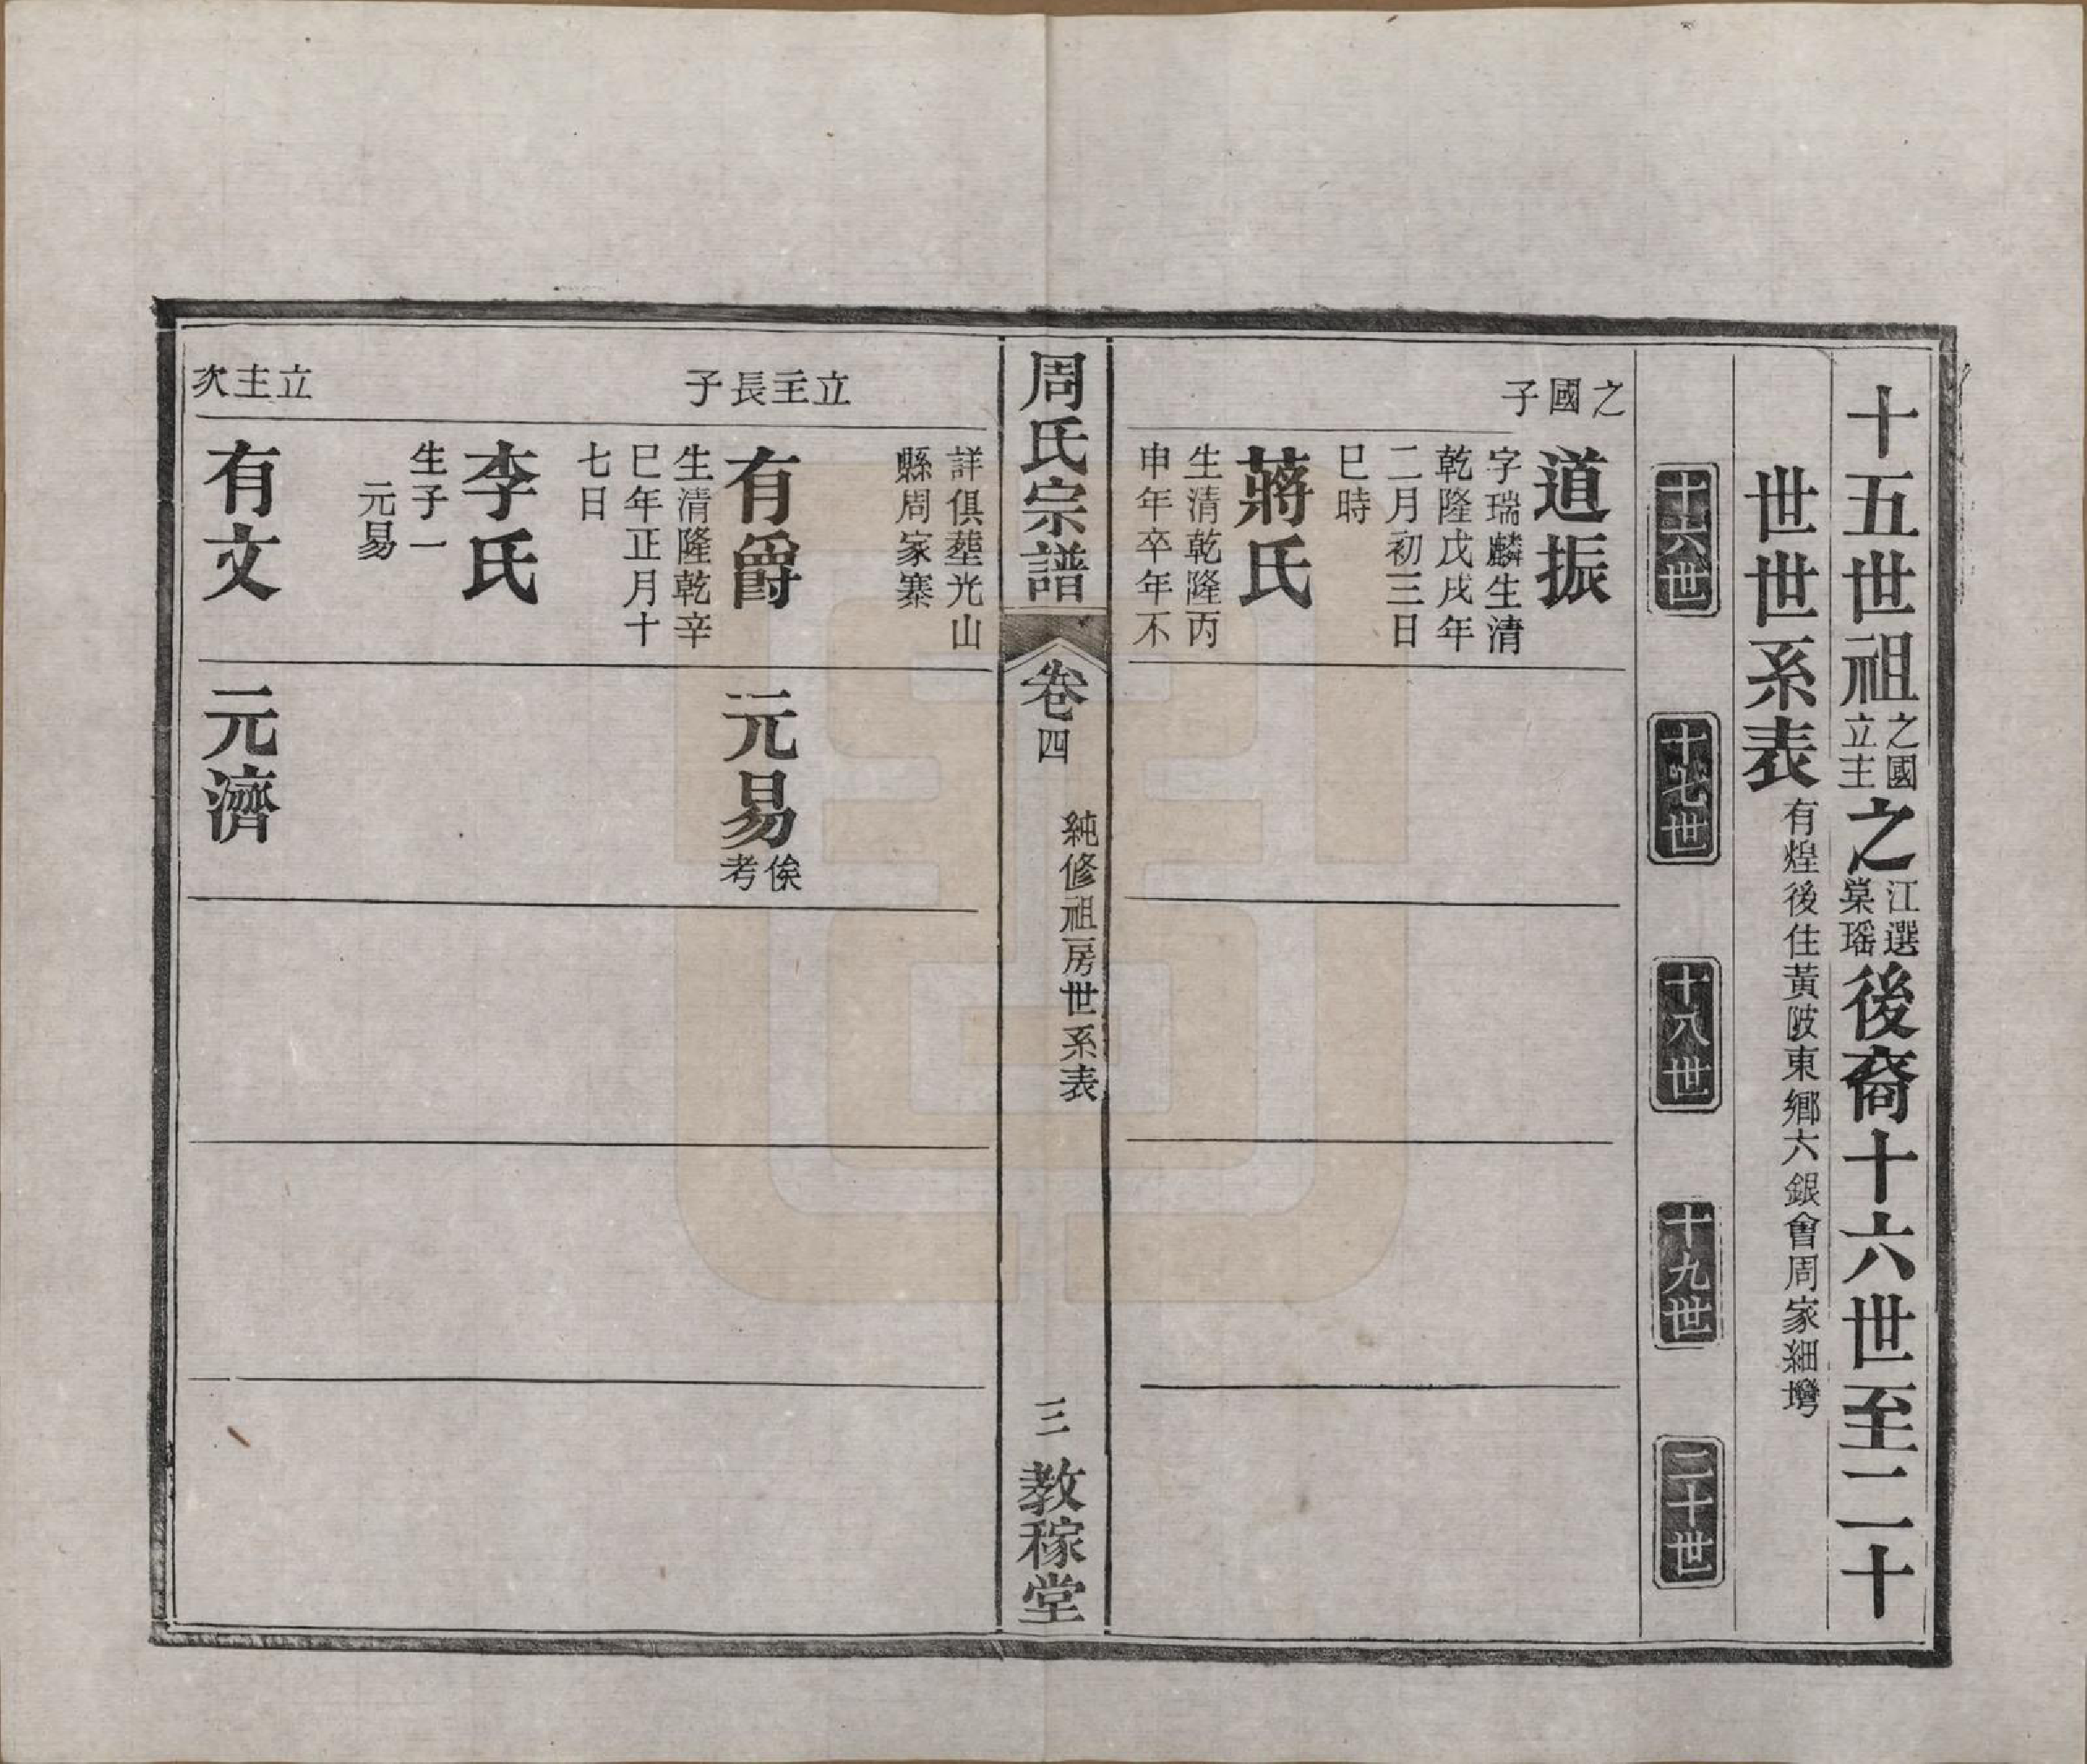 十五世祖之國立主之江選棠瑤後裔十六世至二十
世世系表有煌後住黃陂東鄉六銀會周家細塆
十六世
十七世
十八世
十九世
二十世
之國子
道振
字瑞麟生清
乾隆戊戌年
二月初三日
巳時
蔣氏
生清乾隆丙
申年卒年不
周氏宗譜
卷四
純修祖房世系表
三
教稼堂
詳俱塟光山
縣周家寨
立主長子
有爵
生清隆乾辛
巳年正月十
七日
李氏
生子一
元易
元易俟考
立主次
有文
元濟